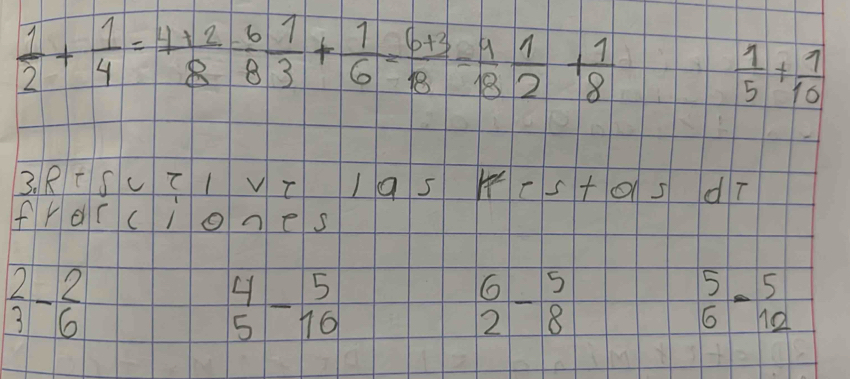 1/2 + 1/4 = 4+2/8 = 6/8 1/3 + 1/6 = 6+3/18 = 9/18 1/2 + 1/8 1/5 + 1/10
3. Resuelve las restas de
fracciones
2/3 - 2/6 4/5 - 5/10 6/2 - 5/8 5/6 - 5/12